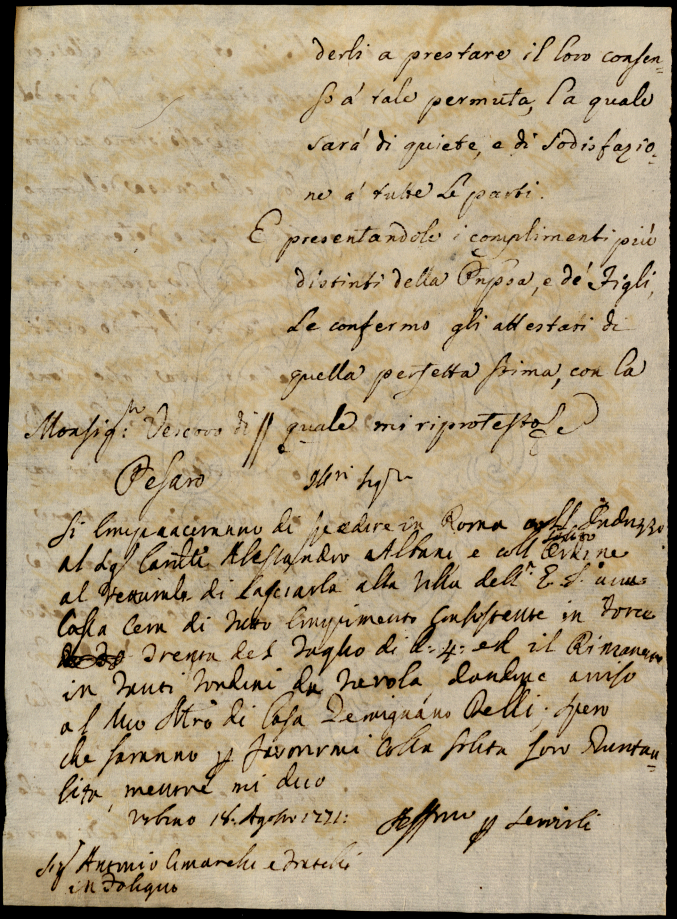 derli a prestare il loro consen=
so a' tale permuta, la quale
sarà di quiete, e di sodisfazio=
ne a' tutte le parti.
E presentandole i complimenti più
distinti della Pnpssa, e de' Figli,
Le confermo gli attestati di
quella perfetta stima, con la
quale mi riprotesto
Monsig.r Vescovo di
Pesaro
Si compiaceranno di spedire in Roma
al Sig. Alessandro Albani e coll' Ordine
al di lasciarla alla Villa dell' E. S.
Cassa Cera di tutto compimento consistente in Torce
Trenta del Taglio di L: 4: ed il Rimanente
in tanti dandone aviso
al Mio Mro di Casa Belli; spero
che saranno p favorirmi colla solita loro Puntua=
lità, mentre mi dico
Urbino 18. Agosto 1771:
Sig.ri Antonio e Fratelli
in Foligno